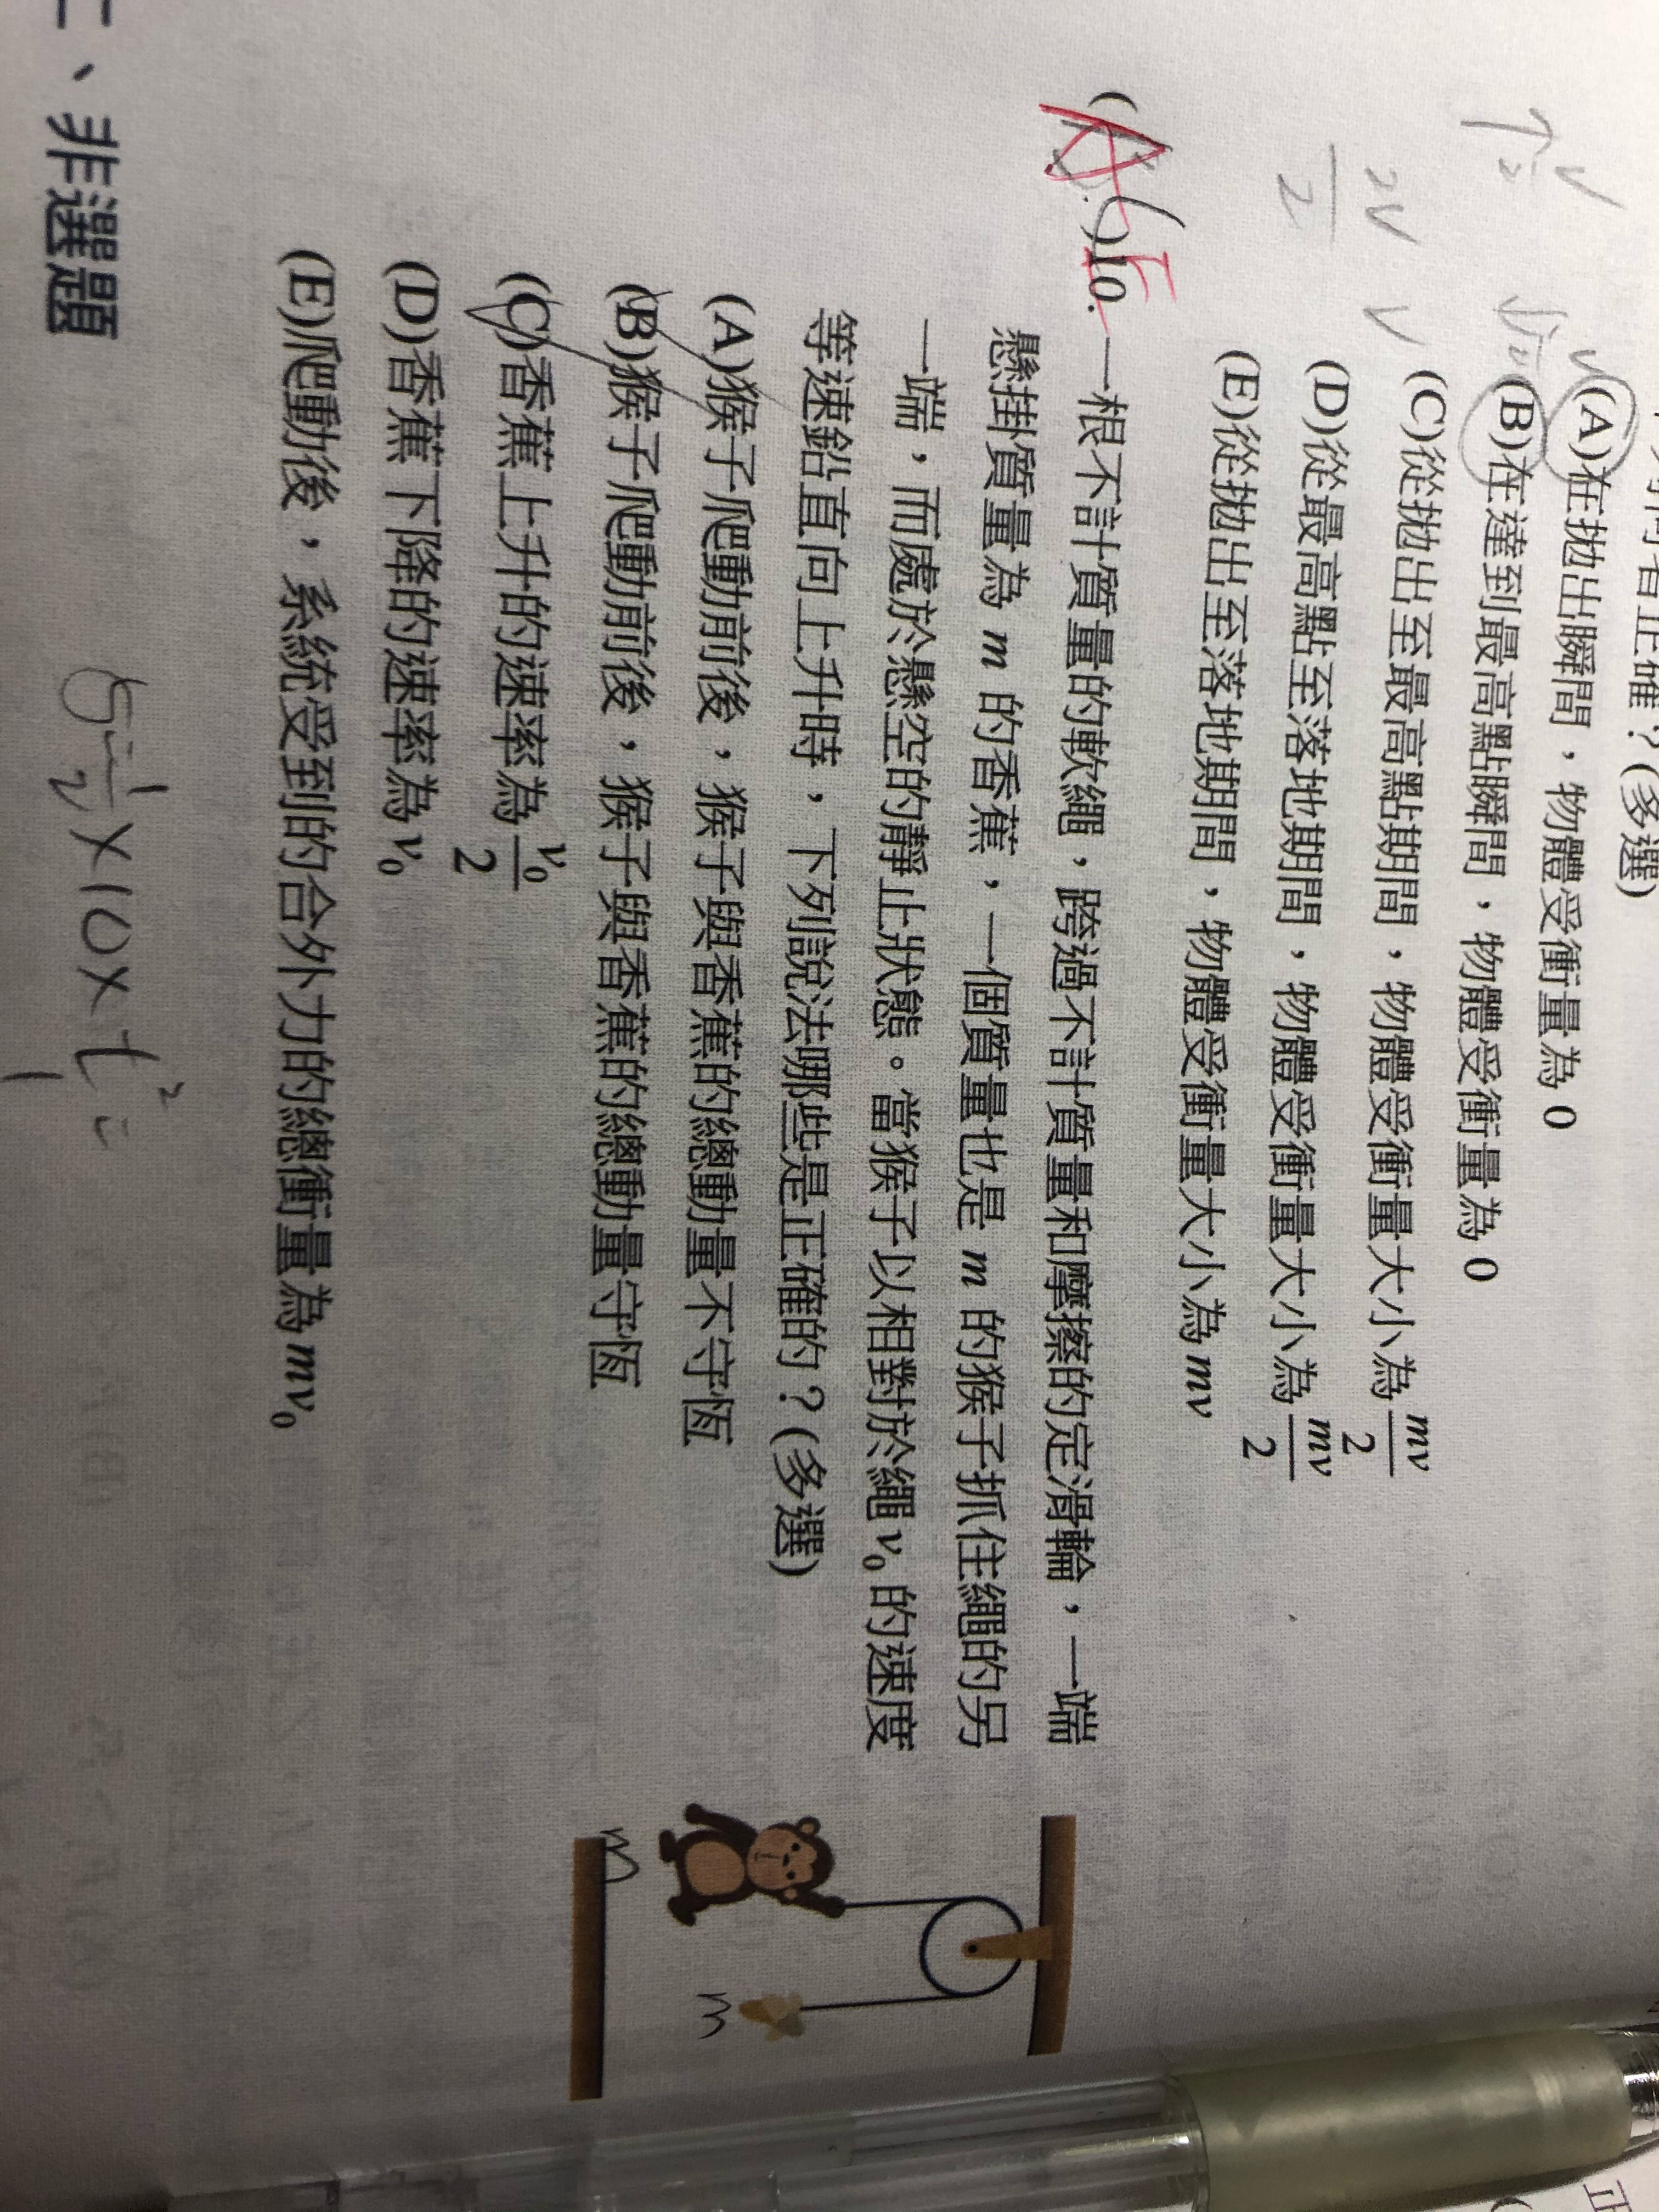 下列何者正確？(多選)
(A)在拋出瞬間，物體受衝量為 0
(B)在達到最高點瞬間，物體受衝量為 0
(C)從拋出至最高點期間，物體受衝量大小為 mv/2
(D)從最高點至落地期間，物體受衝量大小為 mv/2
(E)從拋出至落地期間，物體受衝量大小為 mv
2v/2
v
( )10.一根不計質量的軟繩，跨過不計質量和摩擦的定滑輪，一端
懸掛質量為 m 的香蕉，一個質量也是 m 的猴子抓住繩的另
一端，而處於懸空的靜止狀態。當猴子以相對於繩 v₀ 的速度
等速鉛直向上升時，下列說法哪些是正確的？(多選)
(A)猴子爬動前後，猴子與香蕉的總動量不守恆
(B)猴子爬動前後，猴子與香蕉的總動量守恆
(C)香蕉上升的速率為 v₀/2
(D)香蕉下降的速率為 v₀
(E)爬動後，系統受到的合外力的總衝量為 mv₀
m
m
二、非選題